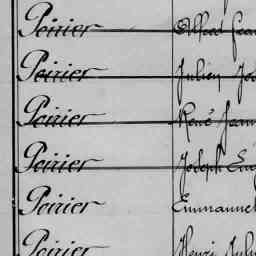 Poirier Alfred
Poirier Julien
Poirier René Jean
Poirier Joseph
Poirier Emmanuel
Poirier Henri